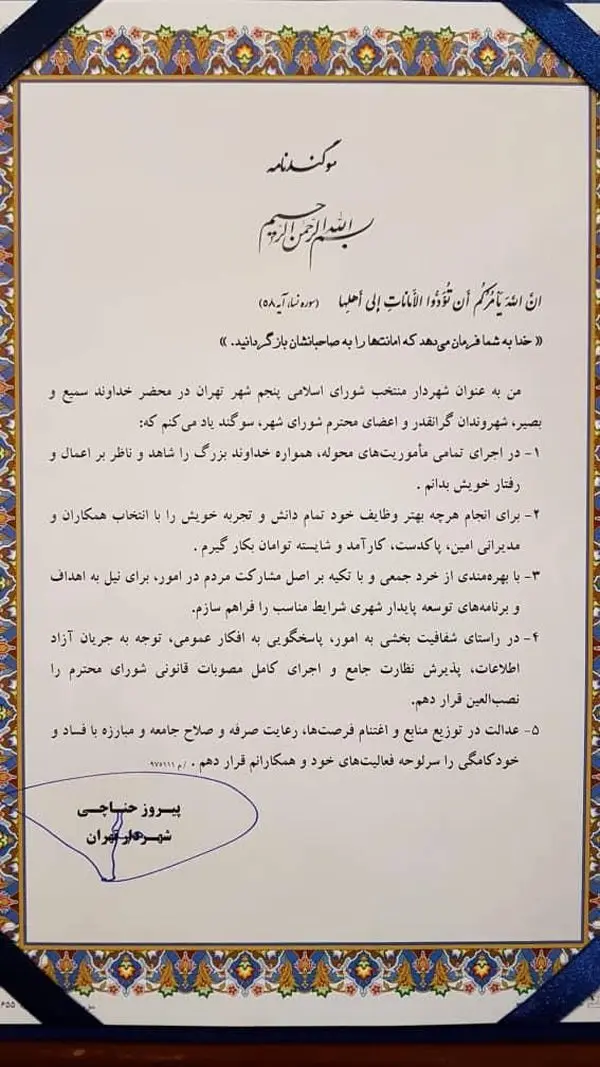 سوگندنامه
بسم الله الرحمن الرحیم
انَّ اللهَ یَأمُرُکُم أن تُؤَدُّوا الأماناتِ إلی أهلِها (سوره نساء، آیه ۵۸)
« خدا به شما فرمان می‌دهد که امانت‌ها را به صاحبانشان بازگردانید. »
من به عنوان شهردار منتخب شورای اسلامی پنجم شهر تهران در محضر خداوند سمیع و
بصیر، شهروندان گرانقدر و اعضای محترم شورای شهر، سوگند یاد می‌کنم که:
۱- در اجرای تمامی مأموریت‌های محوله، همواره خداوند بزرگ را شاهد و ناظر بر اعمال و
رفتار خویش بدانم .
۲- برای انجام هرچه بهتر وظایف خود تمام دانش و تجربه خویش را با انتخاب همکاران و
مدیرانی امین، پاکدست، کارآمد و شایسته توامان بکار گیرم .
۳- با بهره‌مندی از خرد جمعی و با تکیه بر اصل مشارکت مردم در امور، برای نیل به اهداف
و برنامه‌های توسعه پایدار شهری شرایط مناسب را فراهم سازم.
۴- در راستای شفافیت بخشی به امور، پاسخگویی به افکار عمومی، توجه به جریان آزاد
اطلاعات، پذیرش نظارت جامع و اجرای کامل مصوبات قانونی شورای محترم را
نصب‌العین قرار دهم.
۵- عدالت در توزیع منابع و اغتنام فرصت‌ها، رعایت صرفه و صلاح جامعه و مبارزه با فساد و
خودکامگی را سرلوحه فعالیت‌های خود و همکارانم قرار دهم . /م ۹۷۵۱۱۱
پیروز حناچی
شهردار تهران